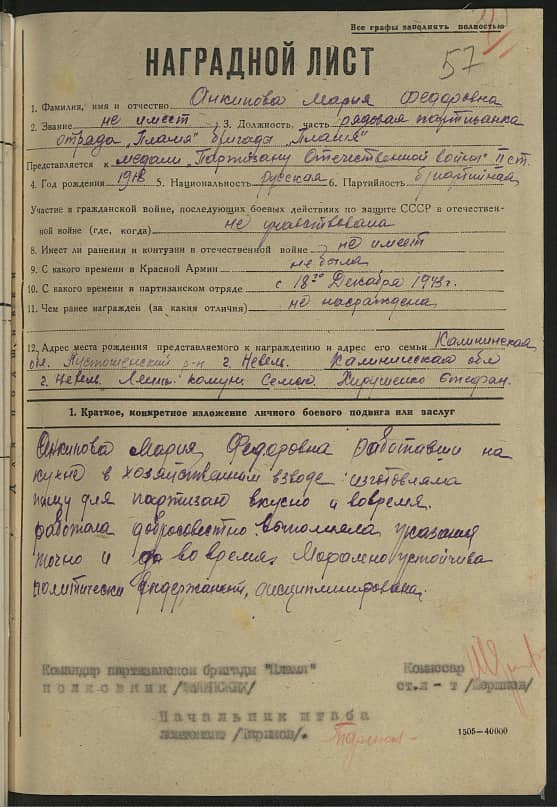 Все графы заполнять полностью
НАГРАДНОЙ ЛИСТ
57
1. Фамилия, имя и отчество Анкипова Мария Федоровна
2. Звание не имеет 3. Должность, часть рядовая партизанка
отряда „Пламя" бригада „Пламя"
Представляется к медали „Партизану Отечественной войны" II ст.
4. Год рождения 1918 5. Национальность русская 6. Партийность б/партийная
Участие в гражданской войне, последующих боевых действиях по защите СССР в отечествен-
ной войне (где, когда) не участвовала
8. Имеет ли ранения и контузии в отечественной войне не имеет
9. С какого времени в Красной Армии не была
10. С какого времени в партизанском отряде с 18го Декабря 1943г.
11. Чем ранее награжден (за какия отличия) не награждена
12. Адрес места рождения представляемого к награждению и адрес его семьи Калининская
обл. Пустошенский р-н г. Невель. Калининская обл
г. Невель. Ленин. комун. Семью. Хирушенко Стефан.
1. Краткое, конкретное изложение личного боевого подвига или заслуг
Анкипова Мария Федоровна Работавши на
кухне в хозяйственном взводе изготовляла
пищу для партизан вкусно и вовремя.
работала добросовестно. Выполняла указания
точно и во время. Морально устойчива
политически выдержанна, дисциплинирована.
Командир партизанской бригады "Пламя"
полковник
Комиссар
ст.л-т
Начальник штаба
1505—40000
Для подшивки